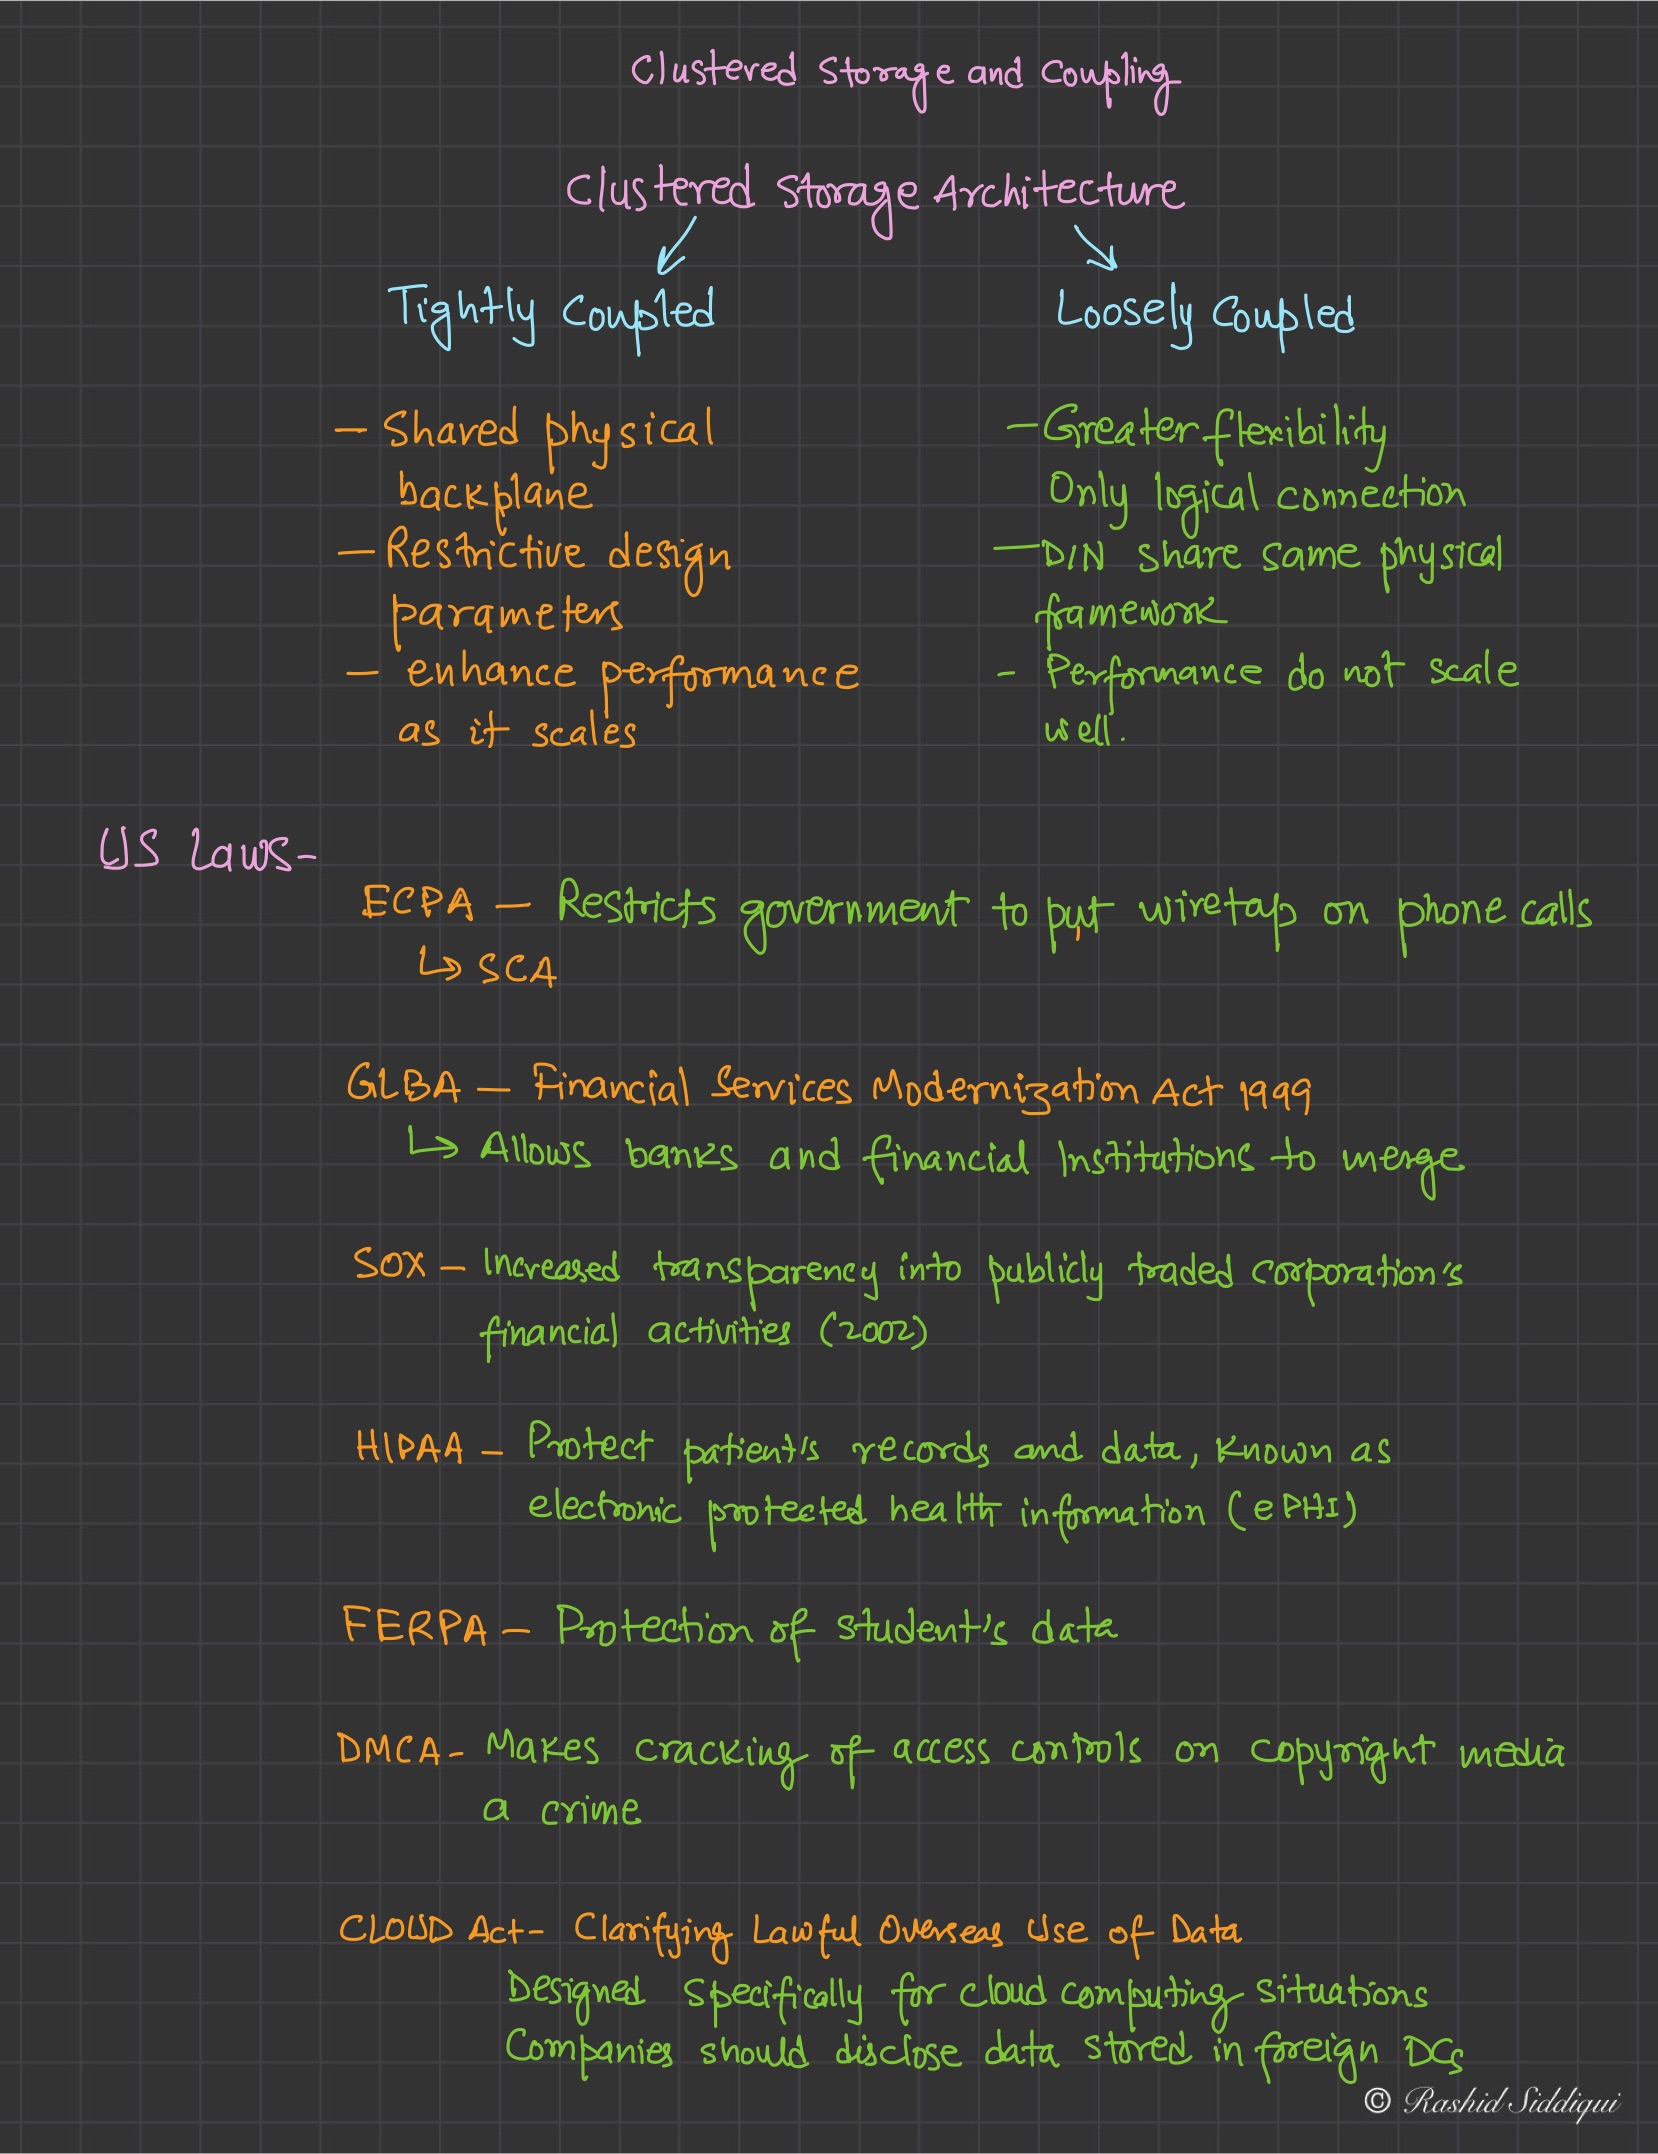 Clustered Storage and Coupling
Clustered Storage Architecture
Tightly Coupled
Loosely Coupled
– Shared physical
backplane
– Restrictive design
parameters
– enhance performance
as it scales
– Greater flexibility
Only logical connection
– DIN share same physical
framework
- Performance do not scale
well.
US Laws-
ECPA – Restricts government to put wiretap on phone calls
↳ SCA
GLBA – Financial Services Modernization Act 1999
↳ Allows banks and financial Institutions to merge
SOX – Increased transparency into publicly traded corporation's
financial activities (2002)
HIPAA – Protect patient's records and data, Known as
electronic protected health information (ePHI)
FERPA – Protection of student's data
DMCA - Makes cracking of access controls on copyright media
a crime
CLOUD Act - Clarifying Lawful Overseas Use of Data
Designed specifically for cloud computing situations
Companies should disclose data stored in foreign DCs
© Rashid Siddiqui